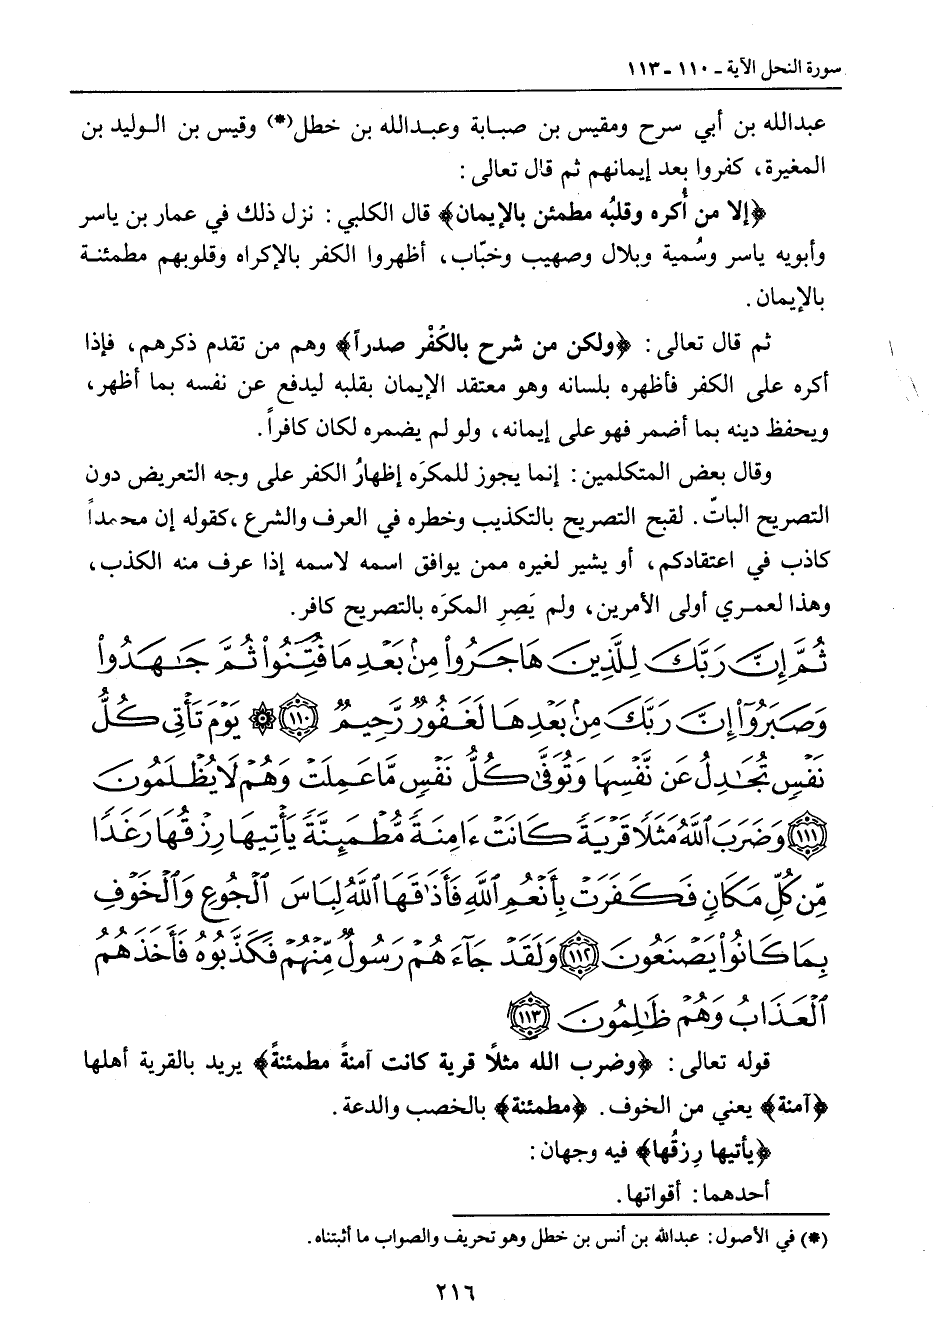 سورة النحل الآية ـ ١١٠ ـ ١١٣
عبدالله بن أبي سرح ومقيس بن صبابة وعبدالله بن خطل(*) وقيس بن الوليد بن
المغيرة، كفروا بعد إيمانهم ثم قال تعالى:
﴿إلا من أُكره وقلبُه مطمئن بالإيمان﴾ قال الكلبي: نزل ذلك في عمار بن ياسر
وأبويه ياسر وسُمية وبلال وصهيب وخبّاب، أظهروا الكفر بالإكراه وقلوبهم مطمئنة
بالإيمان.
ثم قال تعالى: ﴿ولكن من شرح بالكُفْر صدراً﴾ وهم من تقدم ذكرهم، فإذا
أكره على الكفر فأظهره بلسانه وهو معتقد الإيمان بقلبه ليدفع عن نفسه بما أظهر،
ويحفظ دينه بما أضمر فهو على إيمانه، ولو لم يضمره لكان كافراً.
وقال بعض المتكلمين: إنما يجوز للمكرَه إظهارُ الكفر على وجه التعريض دون
التصريح الباتّ. لقبح التصريح بالتكذيب وخطره في العرف والشرع ،كقوله إن محمداً
كاذب في اعتقادكم، أو يشير لغيره ممن يوافق اسمه لاسمه إذا عرف منه الكذب،
وهذا لعمري أولى الأمرين، ولم يَصِرِ المكرَه بالتصريح كافر.
ثُمَّ إِنَّ رَبَّكَ لِلَّذِينَ هَاجَرُوا۟ مِنۢ بَعْدِ مَا فُتِنُوا۟ ثُمَّ جَـٰهَدُوا۟
وَصَبَرُوٓا۟ إِنَّ رَبَّكَ مِنۢ بَعْدِهَا لَغَفُورٌ رَّحِيمٌ ١١٠ ۞ يَوْمَ تَأْتِى كُلُّ
نَفْسٍ تُجَـٰدِلُ عَن نَّفْسِهَا وَتُوَفَّىٰ كُلُّ نَفْسٍ مَّا عَمِلَتْ وَهُمْ لَا يُظْلَمُونَ
١١١ وَضَرَبَ ٱللَّهُ مَثَلًا قَرْيَةً كَانَتْ ءَامِنَةً مُّطْمَئِنَّةً يَأْتِيهَا رِزْقُهَا رَغَدًا
مِّن كُلِّ مَكَانٍ فَكَفَرَتْ بِأَنْعُمِ ٱللَّهِ فَأَذَٰقَهَا ٱللَّهُ لِبَاسَ ٱلْجُوعِ وَٱلْخَوْفِ
بِمَا كَانُوا۟ يَصْنَعُونَ ١١٢ وَلَقَدْ جَآءَهُمْ رَسُولٌ مِّنْهُمْ فَكَذَّبُوهُ فَأَخَذَهُمُ
ٱلْعَذَابُ وَهُمْ ظَـٰلِمُونَ ١١٣
قوله تعالى: ﴿وضرب الله مثلًا قرية كانت آمنةً مطمئنةً﴾ يريد بالقرية أهلها
﴿آمنة﴾ يعني من الخوف. ﴿مطمئنة﴾ بالخصب والدعة.
﴿يأتيها رِزقُها﴾ فيه وجهان:
أحدهما: أقواتها.
(*) في الأصول: عبدالله بن أنس بن خطل وهو تحريف والصواب ما أثبتناه.
٢١٦